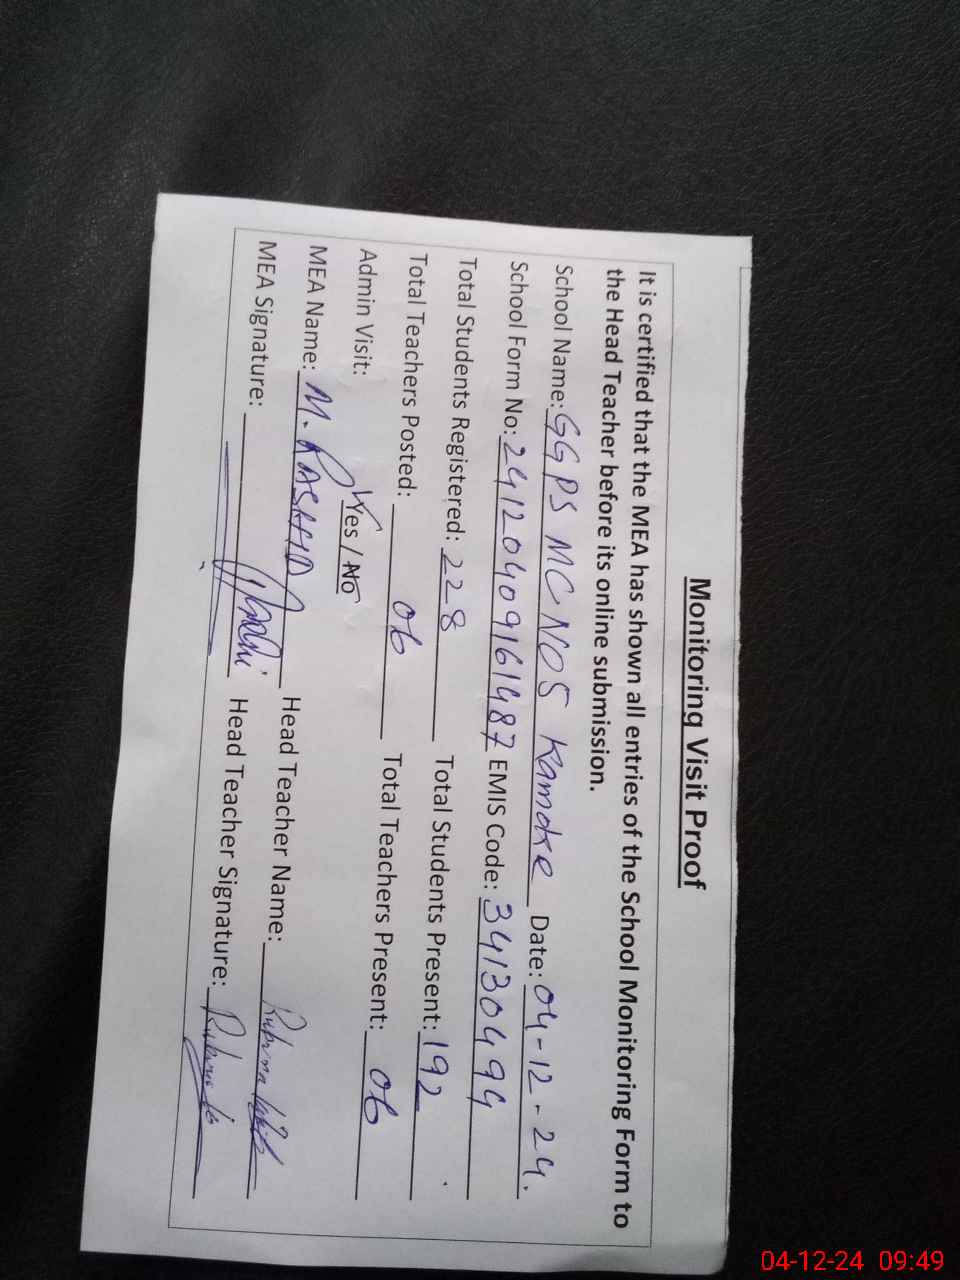 Monitoring Visit Proof
It is certified that the MEA has shown all entries of the School Monitoring Form to
the Head Teacher before its online submission.
School Name: GGPS MC NO5 Kamoke Date: 04-12-24.
School Form No: 24120409161487 EMIS Code: 34130494
Total Students Registered: 228 Total Students Present: 192
Total Teachers Posted: 06 Total Teachers Present: 06
Admin Visit: Yes / No
MEA Name: M. RASHID Head Teacher Name: Rubina
MEA Signature: Head Teacher Signature: Rubina
04-12-24 09:49